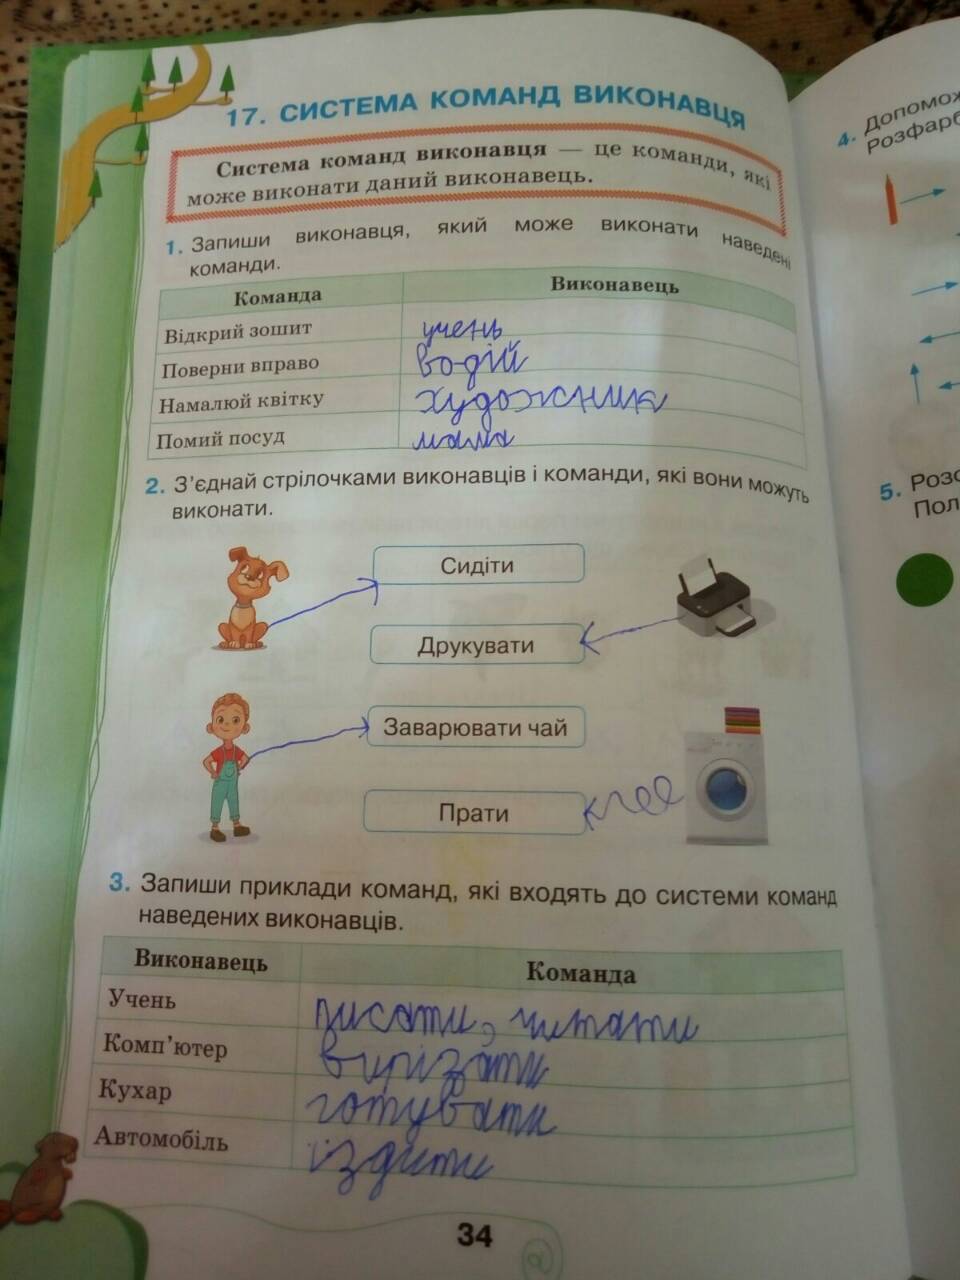 17. СИСТЕМА КОМАНД ВИКОНАВЦЯ
Система команд виконавця — це команди, які
може виконати даний виконавець.
1. Запиши виконавця, який може виконати наведені
команди.
Команда Виконавець
Відкрий зошит учень
Поверни вправо водій
Намалюй квітку художник
Помий посуд мама
2. З’єднай стрілочками виконавців і команди, які вони можуть
виконати.
Сидіти
Друкувати
Заварювати чай
Прати
3. Запиши приклади команд, які входять до системи команд
наведених виконавців.
Виконавець Команда
Учень писати, читати
Комп’ютер вирізати
Кухар готувати
Автомобіль їздити
34
4. Допомож
Розфарб
5. Розф
Пол